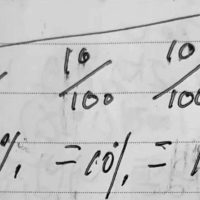 10/100 10/100
%, = 10%, =